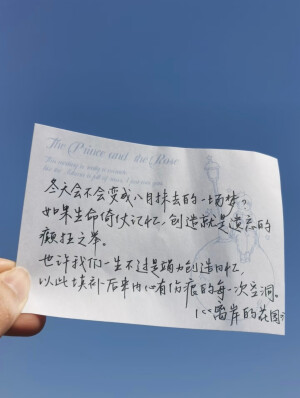 The Prince and the Rose
冬天会不会变成八月抹去的一场梦?
如果生命倚仗记忆,创造就是遗忘的
癫狂之举。
也许我们一生不过是竭力创造旧忆,
以此填补后来内心有伤痕的每一次空洞。
离岸的花园